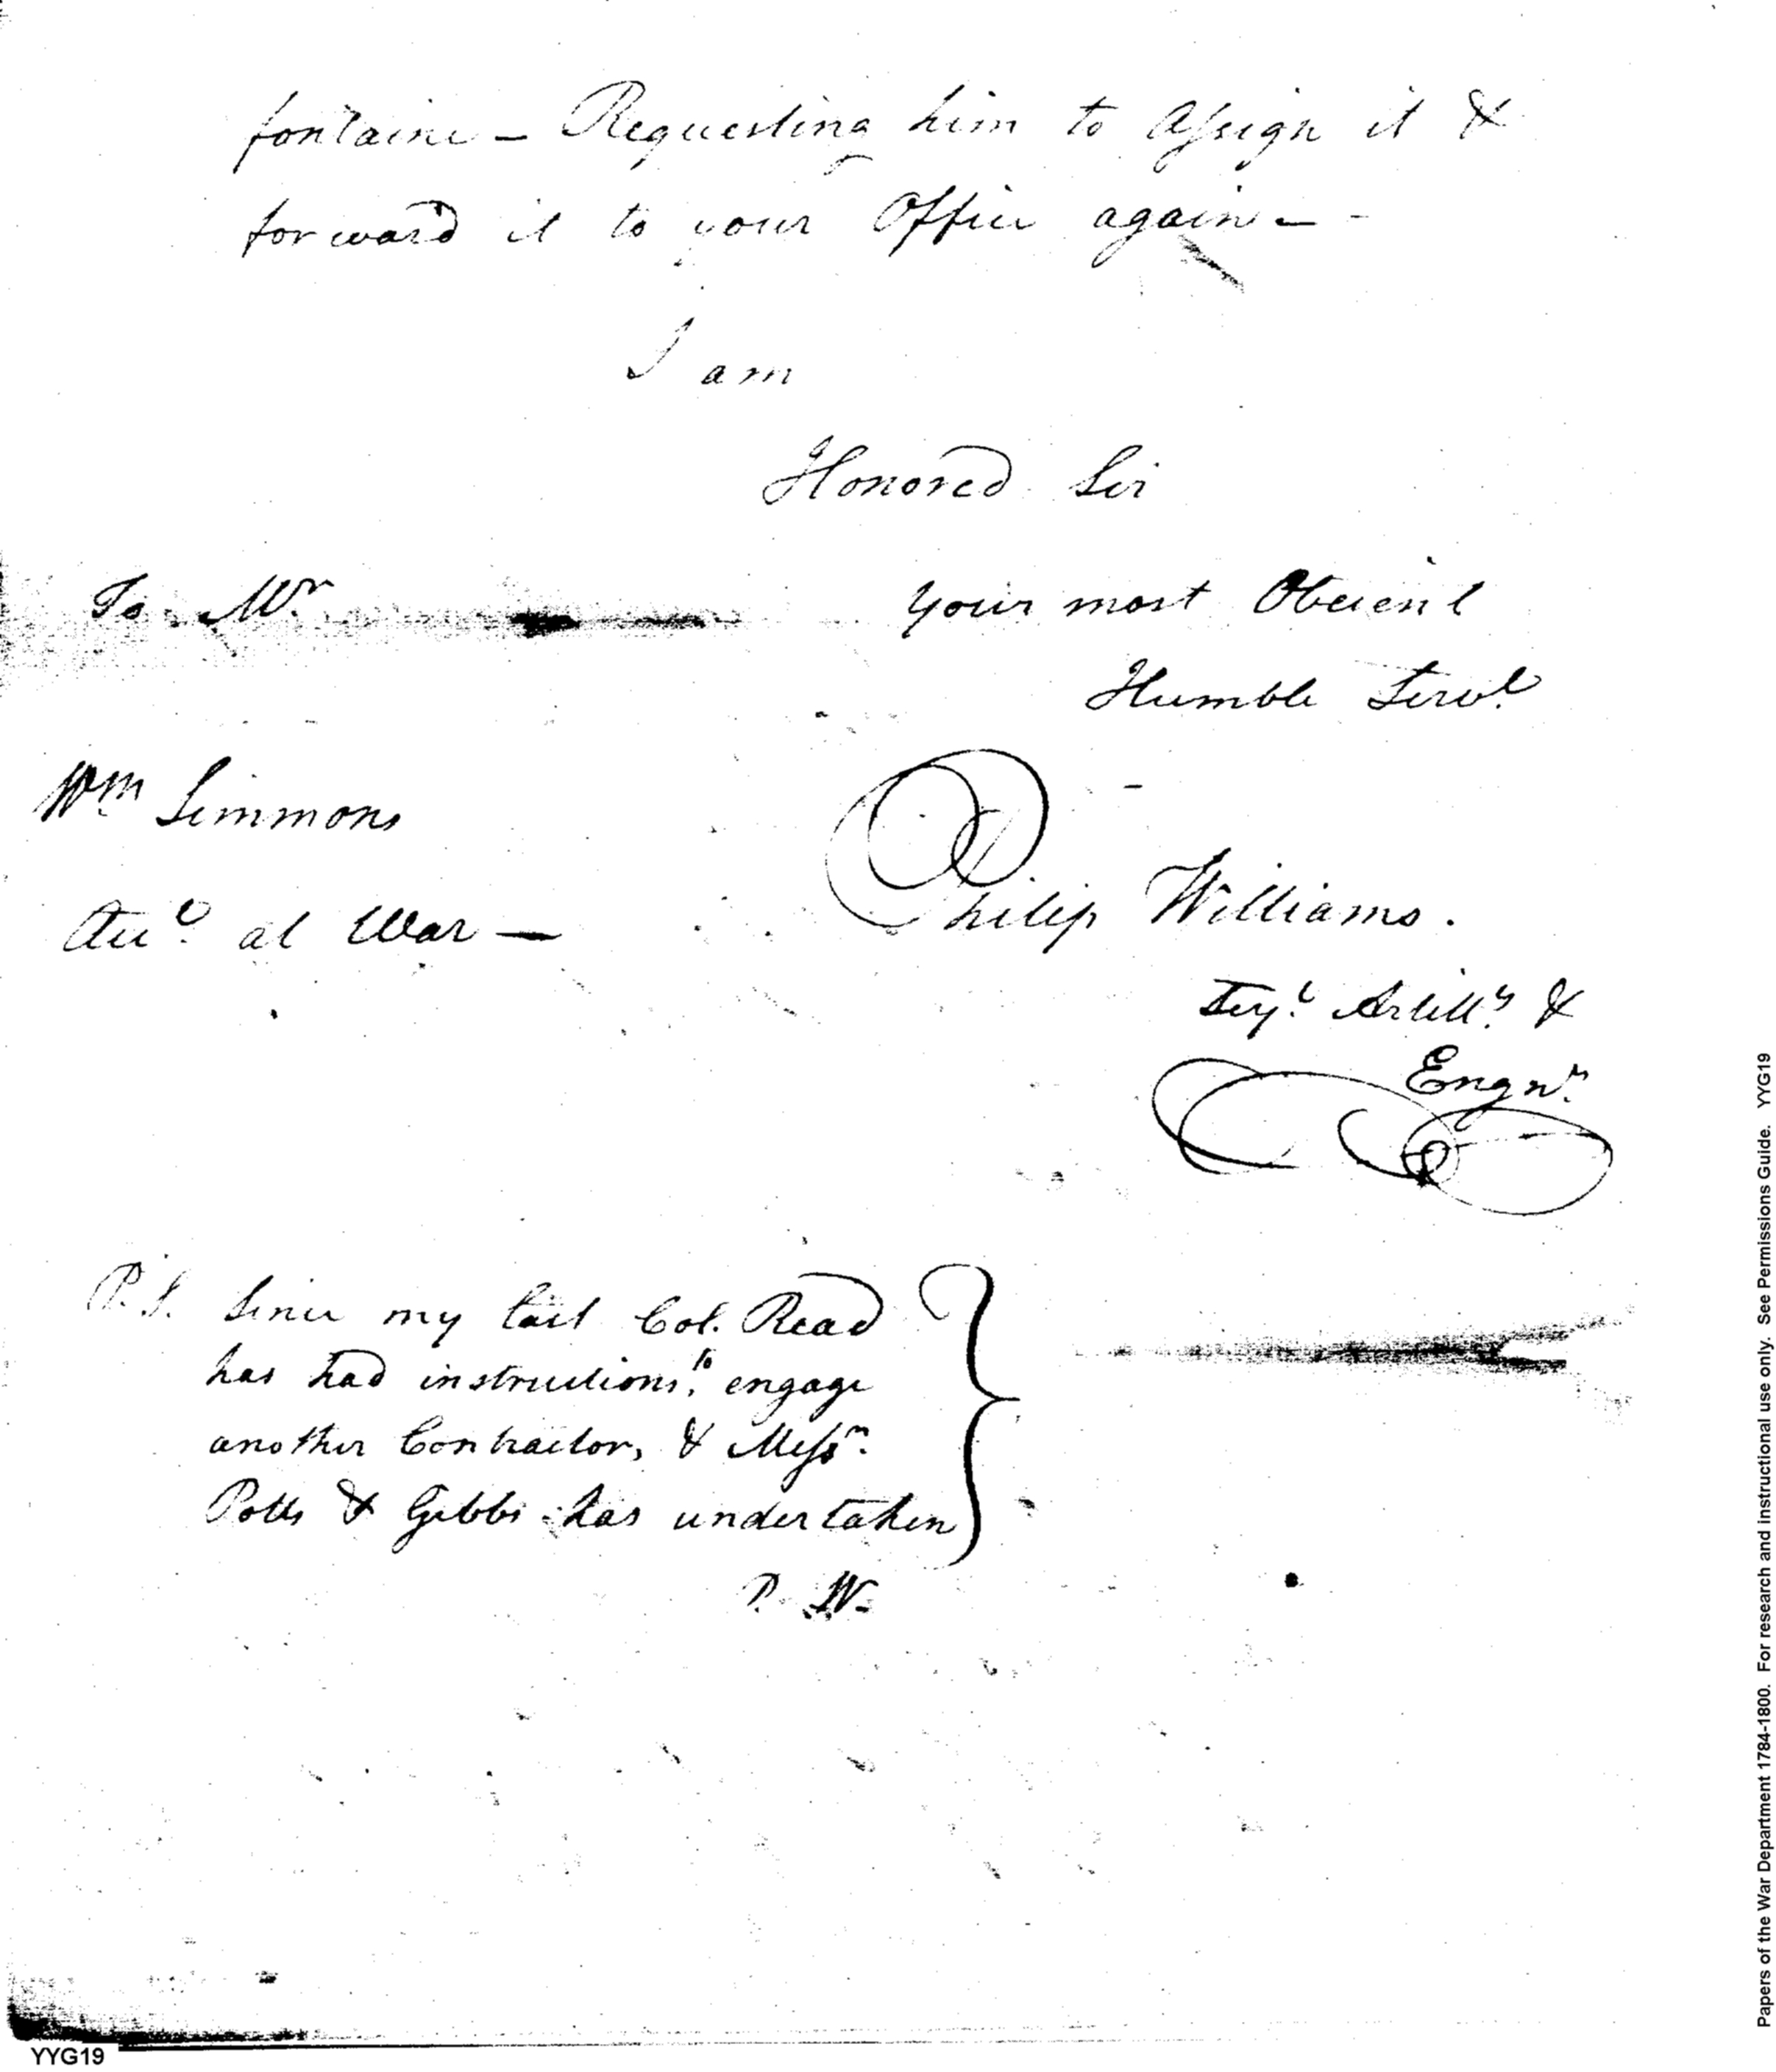 fontaine – Requesting him to Assign it &
forward it to your Office again –
I am
Honored Sir
To Mr
your most Obeient
Humble Servt
Wm Simmons
Philip Williams.
Act. at War —
Sergt. Artilly. &
Engrs.
P.S. Since my last Col. Read
has had instructions to engage
another Contractor, & Messrs.
Potts & Gibbs has undertaken
P. W.
YYG19
Papers of the War Department 1784-1800. For research and instructional use only. See Permissions Guide. YYG19